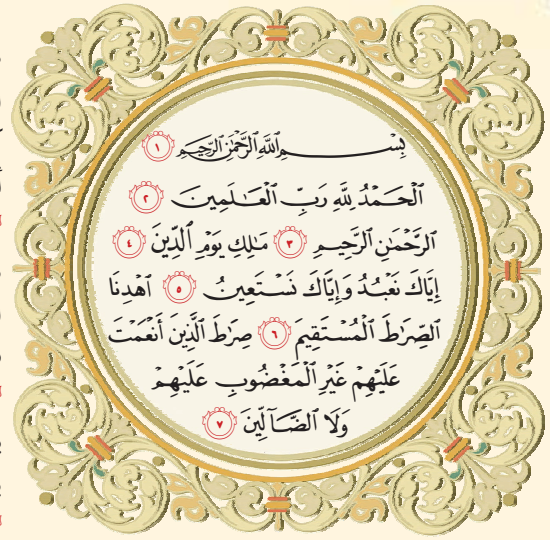 بِسۡمِ ٱللَّهِ ٱلرَّحۡمَٰنِ ٱلرَّحِيمِ ١
ٱلۡحَمۡدُ لِلَّهِ رَبِّ ٱلۡعَـٰلَمِينَ ٢
ٱلرَّحۡمَٰنِ ٱلرَّحِيمِ ٣ مَـٰلِكِ يَوۡمِ ٱلدِّينِ ٤
إِيَّاكَ نَعۡبُدُ وَإِيَّاكَ نَسۡتَعِينُ ٥ ٱهۡدِنَا
ٱلصِّرَٰطَ ٱلۡمُسۡتَقِيمَ ٦ صِرَٰطَ ٱلَّذِينَ أَنۡعَمۡتَ
عَلَيۡهِمۡ غَيۡرِ ٱلۡمَغۡضُوبِ عَلَيۡهِمۡ
وَلَا ٱلضَّآلِّينَ ٧